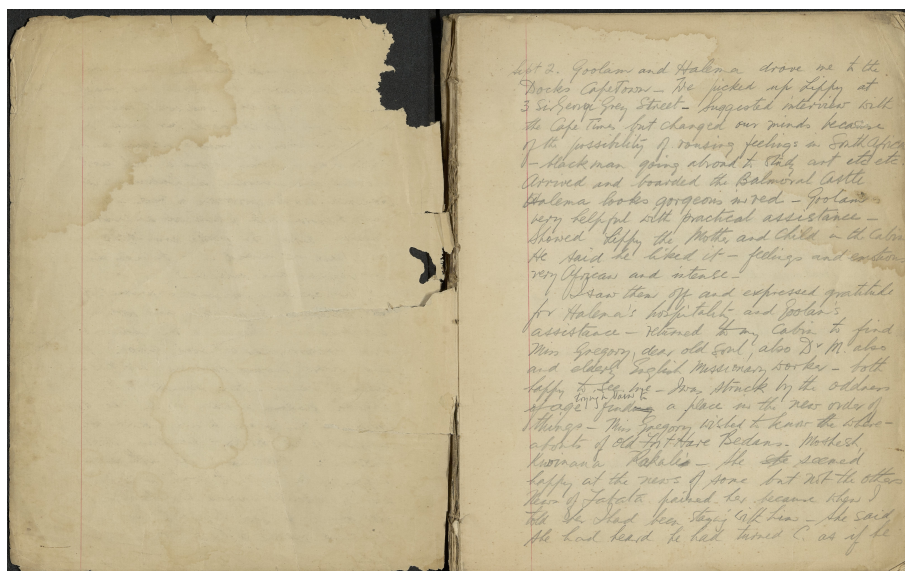 Sept 2. Goolam and Halema drove me to the
Docks CapeTown – We picked up Lippy at
3 Sir George Grey Street – Suggested interview with
the Cape Times but changed our minds because
of the possibility of rousing feelings in South Africa
– black man going abroad to study art etc etc
Arrived and boarded the Balmoral Castle
Halema looks gorgeous in red – Goolam
very helpful with practical assistance –
Showed Lippy the Mother and Child in the Cabin
He said he liked it – feelings and
very African and intense –
I saw them off and expressed gratitude
for Halema's hospitality and Goolam's
assistance – returned to my Cabin to find
Miss Gregory, dear old soul, also Dr M. also
and elderly English Missionary worker – both
happy to see me – I was struck by the oddness
of age trying to a place in the new order of
things – Miss Gregory wished to know the where-
abouts of old Fort Hare
– She seemed
happy at the news of some but not the others
News of Tabata pained her because when I
told her I had been staying with him – she said
she had heard he had turned C. as if he